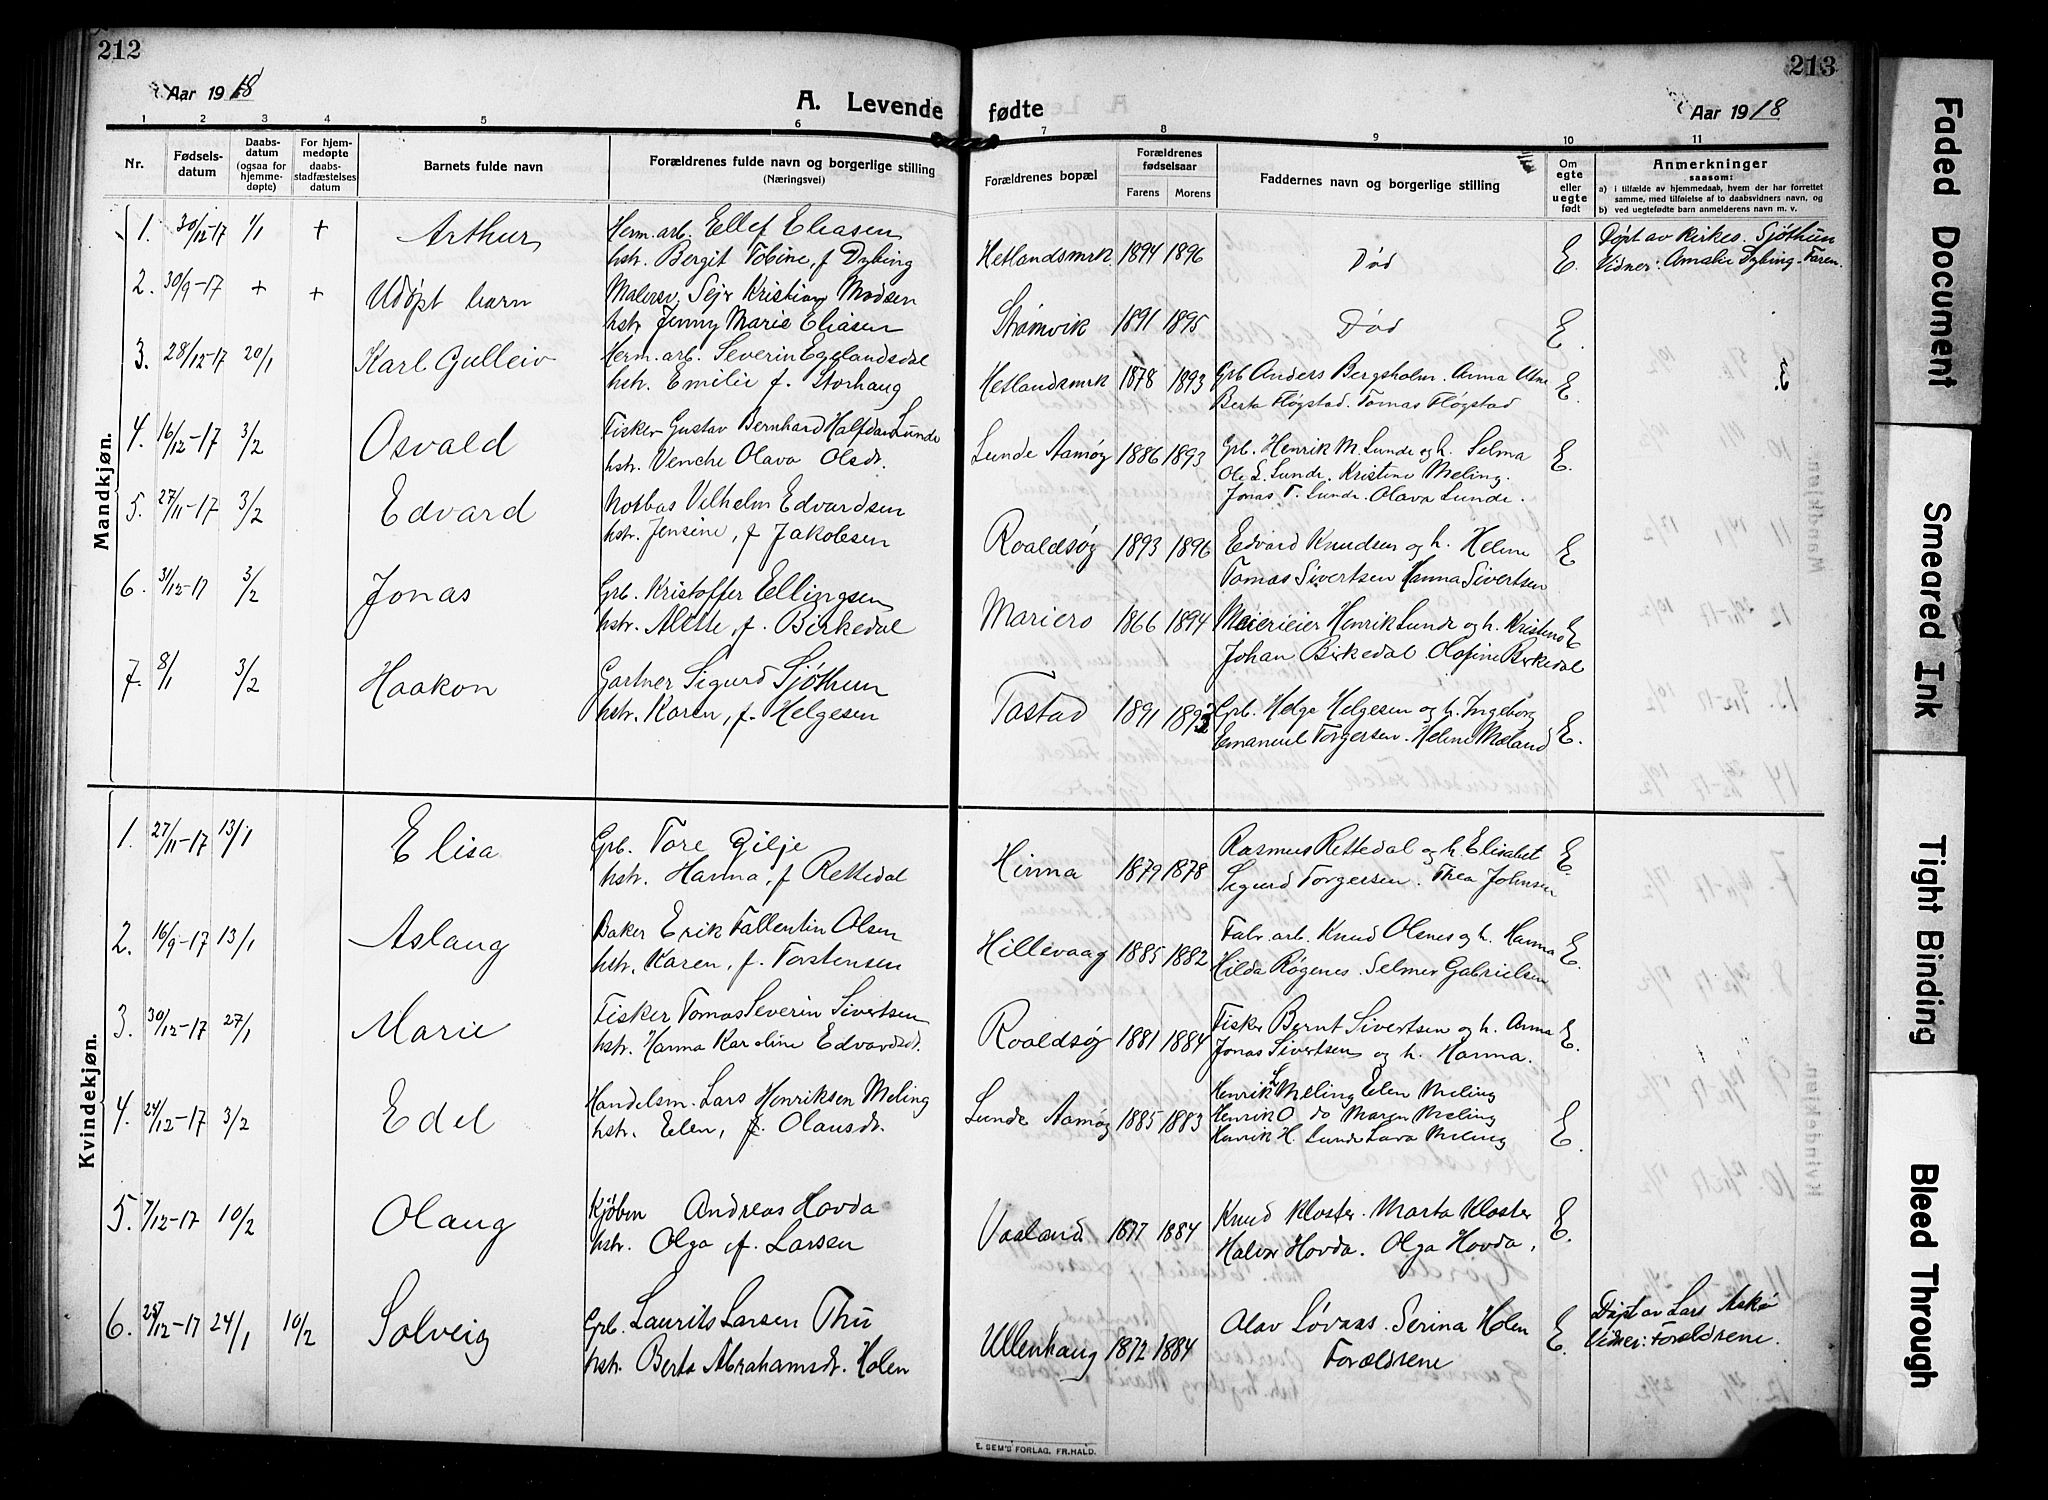 212
Aar 1918
A. Levende
fødte
213
Aar 1918
1 2 3 4 5 6 7 8 9 10 11
Nr.
Fødsels-
datum
Daabs-
datum
(ogsaa for
hjemme-
døpte)
For hjem-
medøpte
daabs-
stadfæstelses
datum
Barnets fulde navn
Forældrenes fulde navn og borgerlige stilling
(Næringsvei)
Forældrenes bopæl
Forældrenes
fødselsaar
Farens Morens
Faddernes navn og borgerlige stilling
Om
egte
eller
uegte
født
Anmerkninger
saasom:
a) i tilfælde av hjemmedaab, hvem der har forrettet
samme, med tilføielse af to daabsvidners navn, og
b) ved uegtefødte barn anmelderens navn m. v.
Mandkjøn.
1. 30/12-17 1/1 + Arthur Herm.arb. Ellef Eliasen
hstr. Bergit Tobine, f Dybing
Hetlandsmrk 1894 1896 Død E. Døpt av Kirkes. Sjöthun
Vidner: Amalie Dybing - Faren
2. 30/9-17 + + Udøpt barn Malersv. Sejr Kristian Madsen
hstr. Jenny Marie Eliasen
Strømvik 1891 1895 Død E.
3. 28/12-17 20/1 Karl Gulleiv Herm.arb. Severin Egelandsdal
hstr. Emilie f. Storhaug
Hetlandsmrk 1878 1893 Grb Anders Bergsholm. Anna Utne
Berta Fløgstad. Tomas Fløgstad E.
4. 16/12-17 3/2 Osvald Fisker Gustav Bernhard Halfdan Lunde
hstr. Venche Olava Olsdr.
Lunde Aamøy 1886 1893 Grb. Henrik M. Lunde og h. Selma
Ole L. Lunde, Kristine Meling.
Jonas T. Lunde. Olava Lunde. E.
5. 27/11-17 3/2 Edvard Notbas Vilhelm Edvardsen
hstr. Jensine, f Jakobsen
Roaldsøy 1893 1896 Edvard Knudsen og h. Helene
Tomas Sivertsen Hanna Sivertsen E
6. 31/12-17 3/2 Jonas Grb. Kristoffer Ellingsen
hstr. Alette, f. Birkedal
Mariero 1866 1894 Meierieier Henrik Lunde og h. Kristine
Johan Birkedal. Olofine Birkedal E
7. 8/1 3/2 Haakon Gartner Sigurd Sjöthun
hstr. Karen, f. Helgesen
Tastad 1891 1893 Grb. Helge Helgesen og h. Ingeborg
Emanuel Torgersen. Helene Mæland E.
Kvindekjøn.
1. 27/11-17 13/1 Elisa Grb. Tore Gilje
hstr. Hanna, f Rettedal
Hinna 1879 1878 Rasmus Rettedal og h. Elisabet
Sigurd Torgersen. Thea Johnsen E.
2. 16/9-17 13/1 Aslaug Baker Erik Fallentin Olsen
hstr. Karen, f. Torstensen
Hillevaag 1885 1882 Fabr. arb. Knud Olsnes og h. Hanna
Hilda Røgenes. Selmer Gabrielsen E.
3. 30/12-17 27/1 Marie Fisker Tomas Severin Sivertsen
hstr. Hanna Karoline Edvardsdr.
Roaldsøy 1881 1884 Fisker Bernt Sivertsen og h. Anna
Jonas Sivertsen og h. Hanna. E.
4. 24/12-17 3/2 Edel Handelsm. Lars Henriksen Meling
hstr. Elen, f. Olausdr.
Lunde Aamøy 1885 1883 Henrik L Meling Elen Meling
Henrik O do Maren Meling
Henrik H. Lunde Lava Meling E.
5. 7/12-17 10/2 Olaug Kjøbm Andreas Hovda
hstr. Olga f. Larsen
Vasland 1877 1884 Knud Kloster. Marta Kloster
Halvor Hovda. Olga Hovda. E.
6. 25/12-17 24/1 10/2 Solveig Grb. Laurits Larsen Thu
hstr. Berta Abrahamsdr. Holen
Ullenhaug 1872 1884 Olav Løvaas. Serina Holen
Forældrene E. Døpt av Lars Askø
Vidner: Forældrene.
E. SEM'S FORLAG, FR.HALD.
Faded Document
Smeared Ink
Tight Binding
Bleed Through